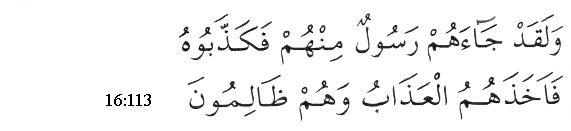 وَلَقَدْ جَٓاءَهُمْ رَسُولٌ مِنْهُمْ فَكَذَّبُوهُ
فَاَخَذَهُمُ الْعَذَابُ وَهُمْ ظَالِمُونَ 16:113